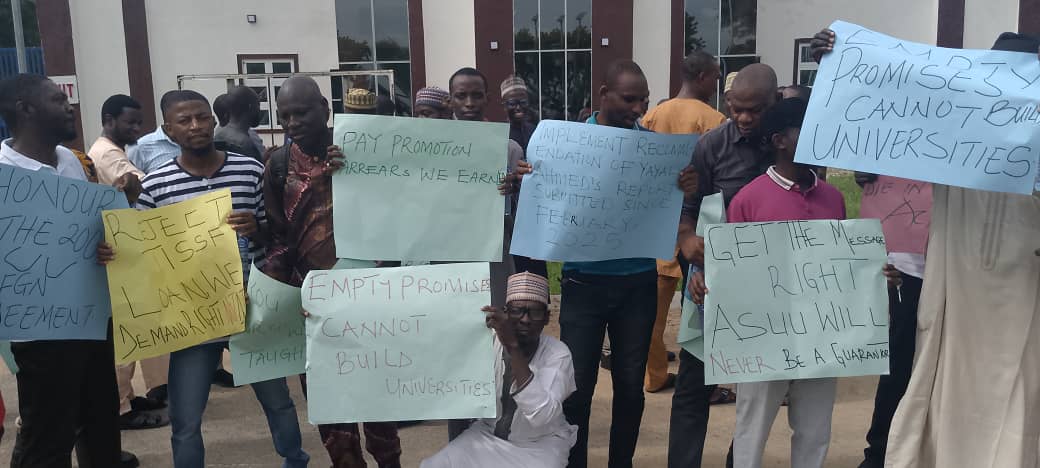 HONOUR
THE 200
FGN
EEMENT
RJECT
TISSF
LOAN WE
DEMAND RIGHT NOW
YOU
TAUGH
PAY PROMOTION
ARREARS WE EARNE
EMPTY PROMISE
CANNOT
BUILD
UNIVERSITIES
IMPLEMENT RECOMM
ENDATION OF YAYAL
AHMED'S REPORT
SUBMITTED SINCE
FEBRIARY,
2025
GET THE MESSAGE
RIGHT
ASUU WILL
NEVER BE A GUARANTOR
DIE IN
AC
EMPTY
PROMISES
CANNOT BUILD
UNIVERSITIES